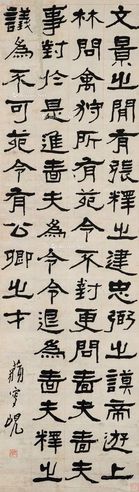 文景之間有張釋之建忠弼之謨帝遊上
林問禽狩所有苑令不對更問嗇夫嗇夫
事對於是進嗇夫為令令退為嗇夫釋之
議為不可苑令有公卿之才